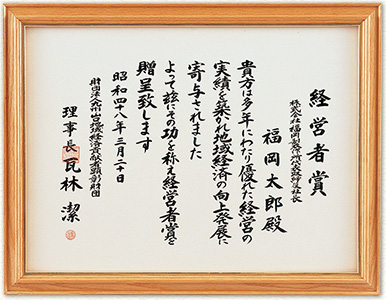 経営者賞
株式会社福岡製作所代表取締役社長
福岡太郎殿
貴方は多年にわたり優れた経営の
実績を築かれ地域経済の向上発展に
寄与されました
よって茲にその功を称え経営者賞を
贈呈致します
昭和四十八年三月二十日
財団法人九州山口地域経済貢献者顕彰財団
理事長瓦林潔